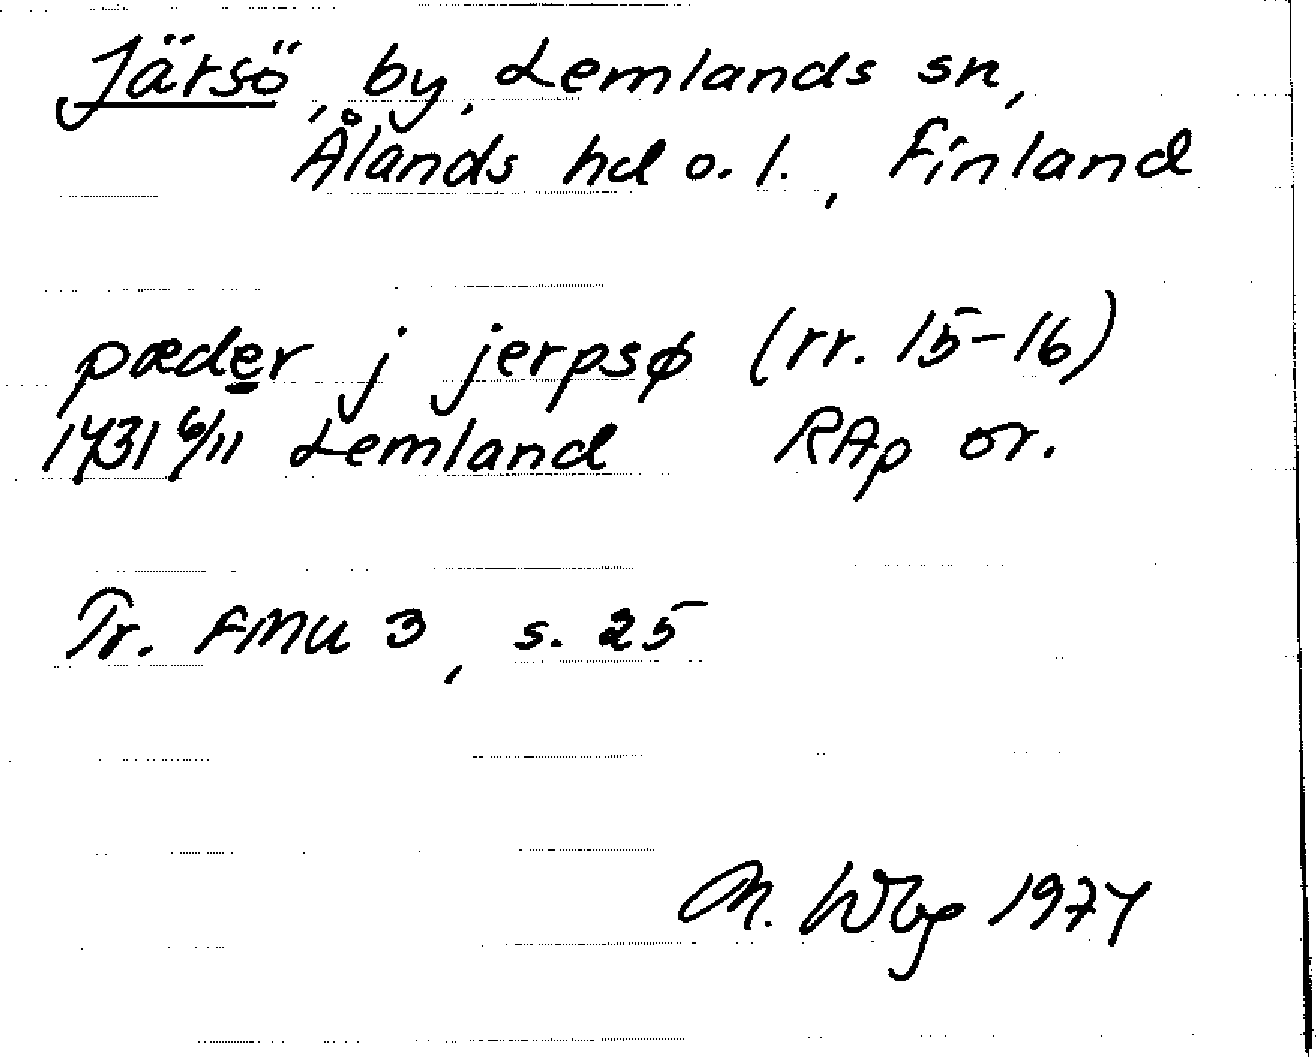 Järsö, by, Lemlands sn,
Ålands hd o. l., Finland
pæder j jerpsø (rr. 15-16)
1431 6/11 Lemland RAp or.
Tr. FMU 3, s. 25
M. Wbg 1974